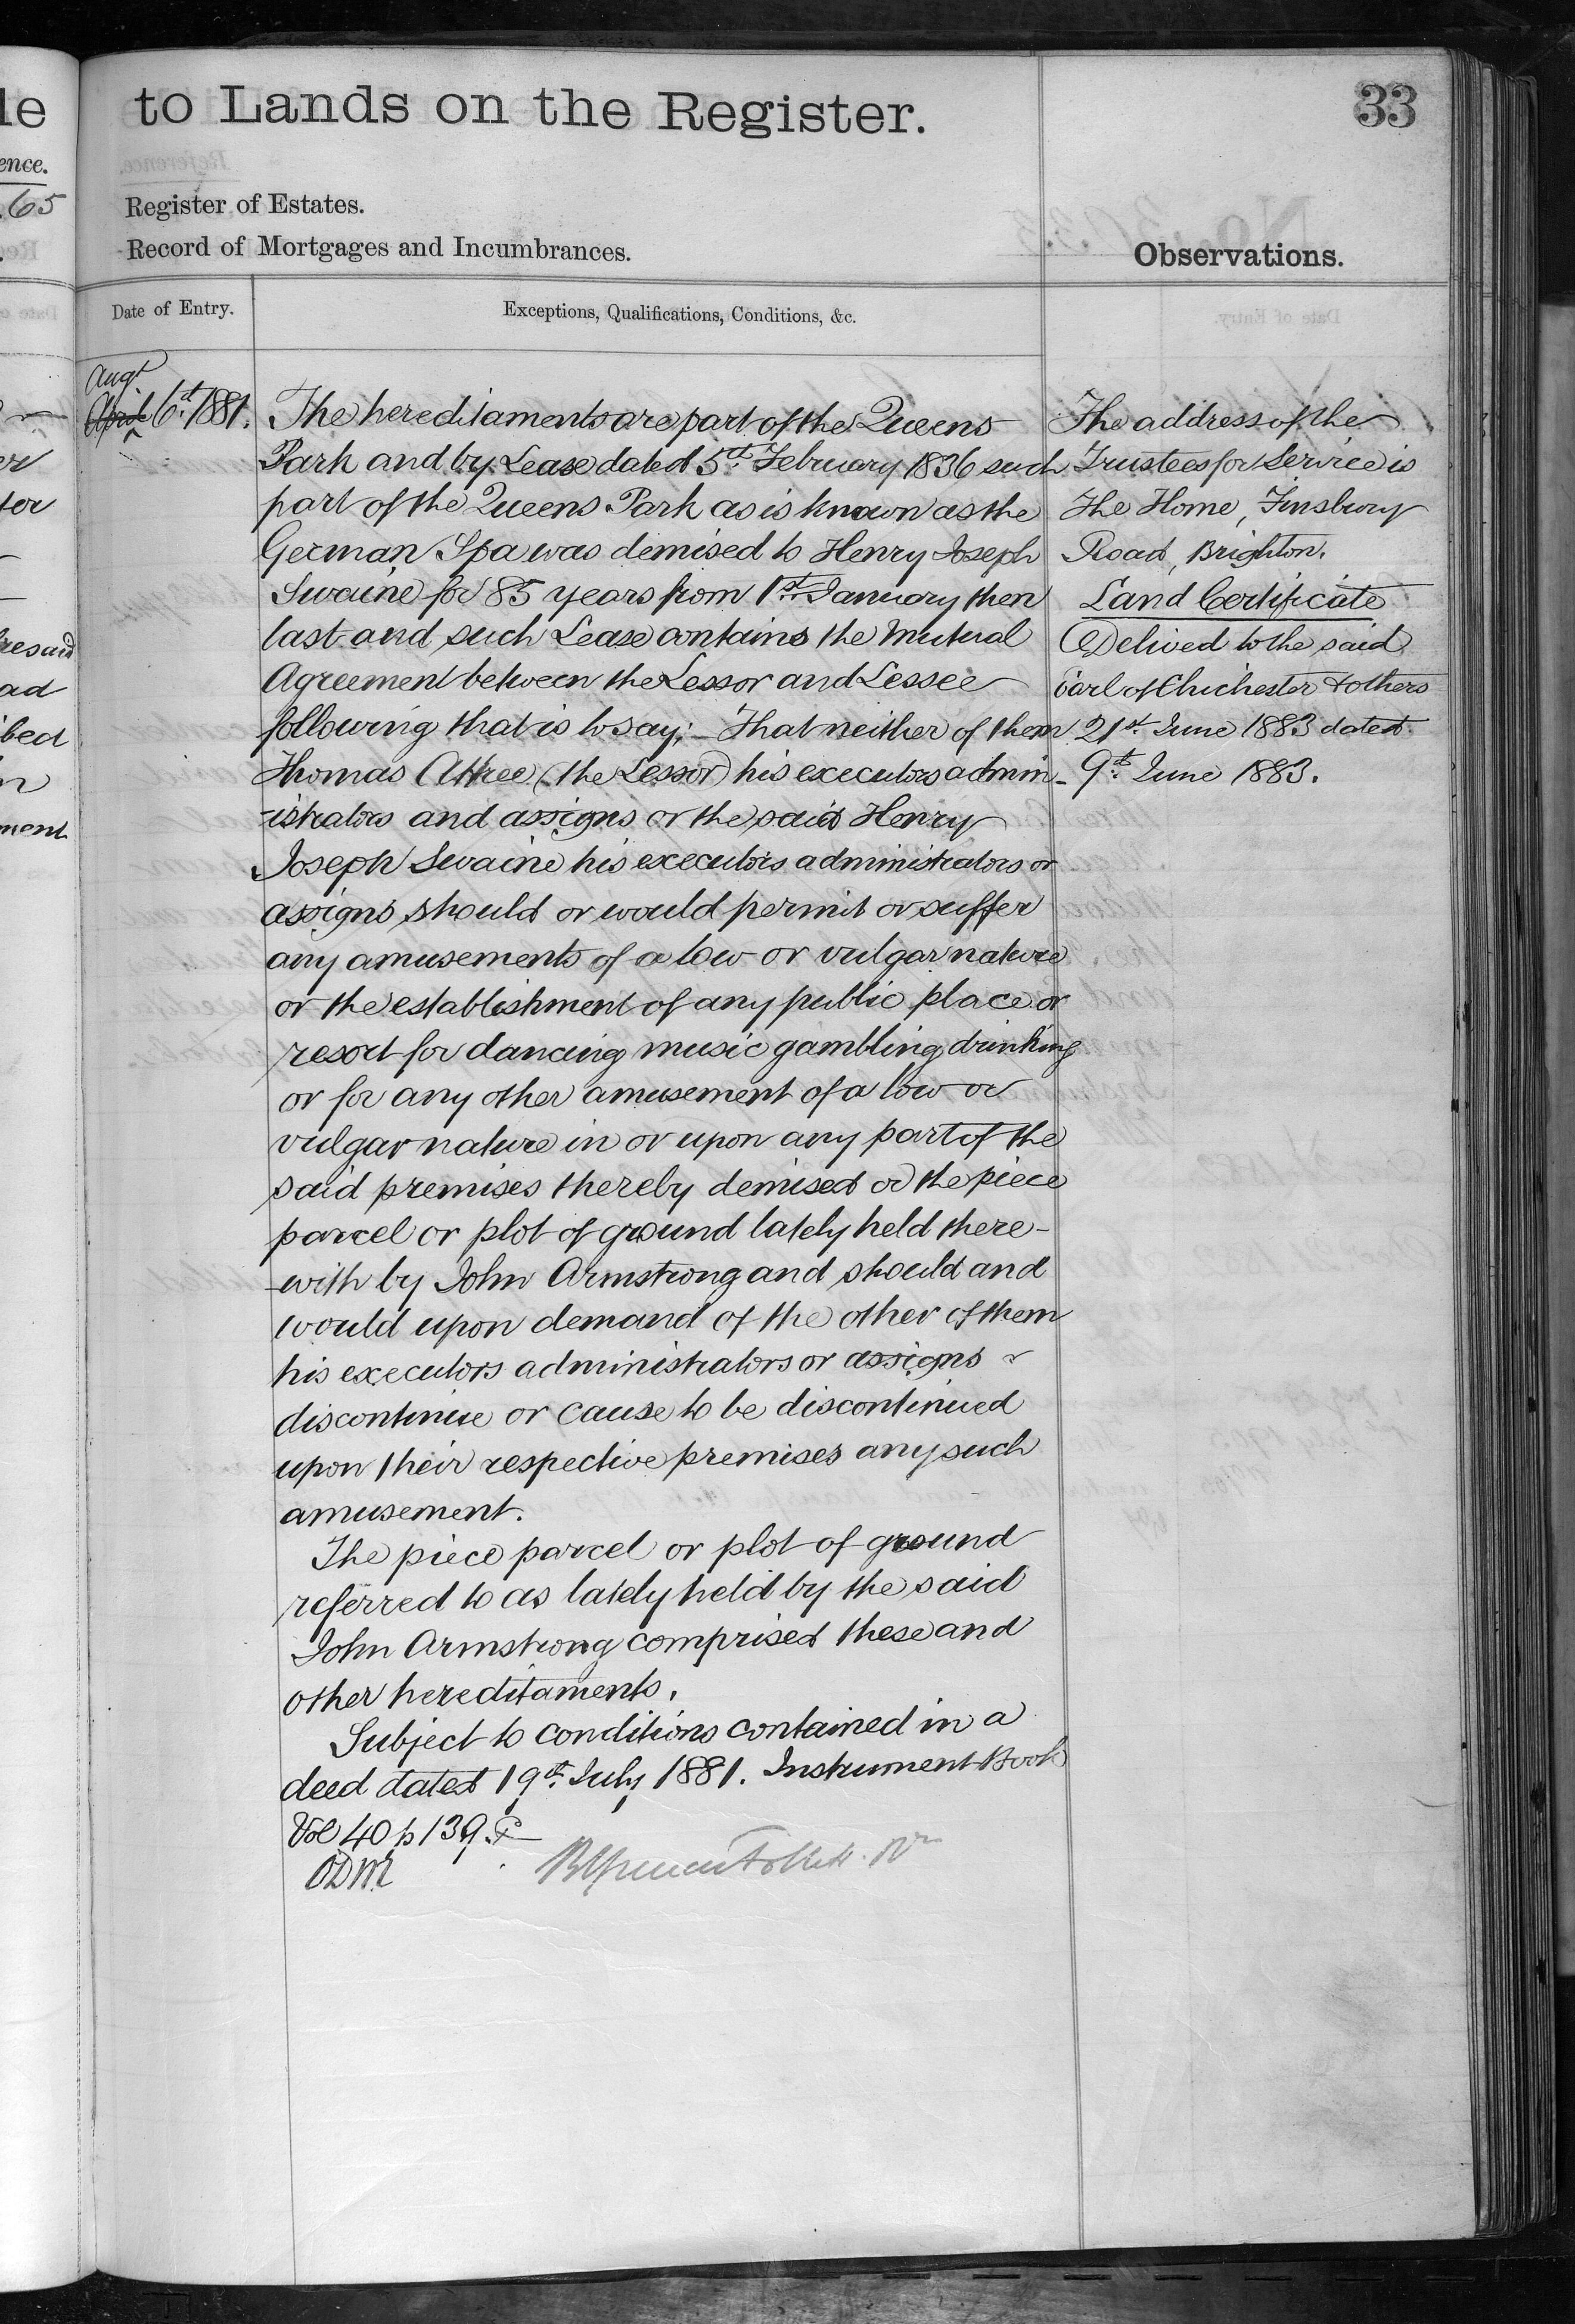 le
ence.
65
er
for
resaid
ad
bed
n
ment
to Lands on the Register.
33
Register of Estates.
Record of Mortgages and Incumbrances.
Observations.
Date of Entry.
Exceptions, Qualifications, Conditions, &c.
Augt
April 6th 1881.
The hereditaments are part of the Queens
Park and by Lease dated 5th February 1836 such
part of the Queens Park as is known as the
German Spa was demised to Henry Joseph
Swaine for 85 years from 1st January then
last and such Lease contains the Mutual
Agreement between the Lessor and Lessee
following that is to say; – That neither of them
Thomas Attree (the Lessor) his executors admin-
istrators and assigns or the said Henry
Joseph Swaine his executors administrators or
assigns should or would permit or suffer
any amusements of a low or vulgar nature
or the establishment of any public place or
resort for dancing music gambling drinking
or for any other amusement of a low or
vulgar nature in or upon any part of the
said premises thereby demised or the piece
parcel or plot of ground lately held there-
-with by John Armstrong and should and
would upon demand of the other of them
his executors administrators or assigns
discontinue or cause to be discontinued
upon their respective premises any such
amusement.
The piece parcel or plot of ground
referred to as lately held by the said
John Armstrong comprised these and
other hereditaments.
Subject to conditions contained in a
deed dated 19th July 1881. Instrument Book
Vol 40 p 139.
The address of the
Trustees for Service is
The Home, Finsbury
Road, Brighton.
Land Certificate
Delived to the said
Earl of Chichester & others
21st June 1883 dated
9th June 1883.